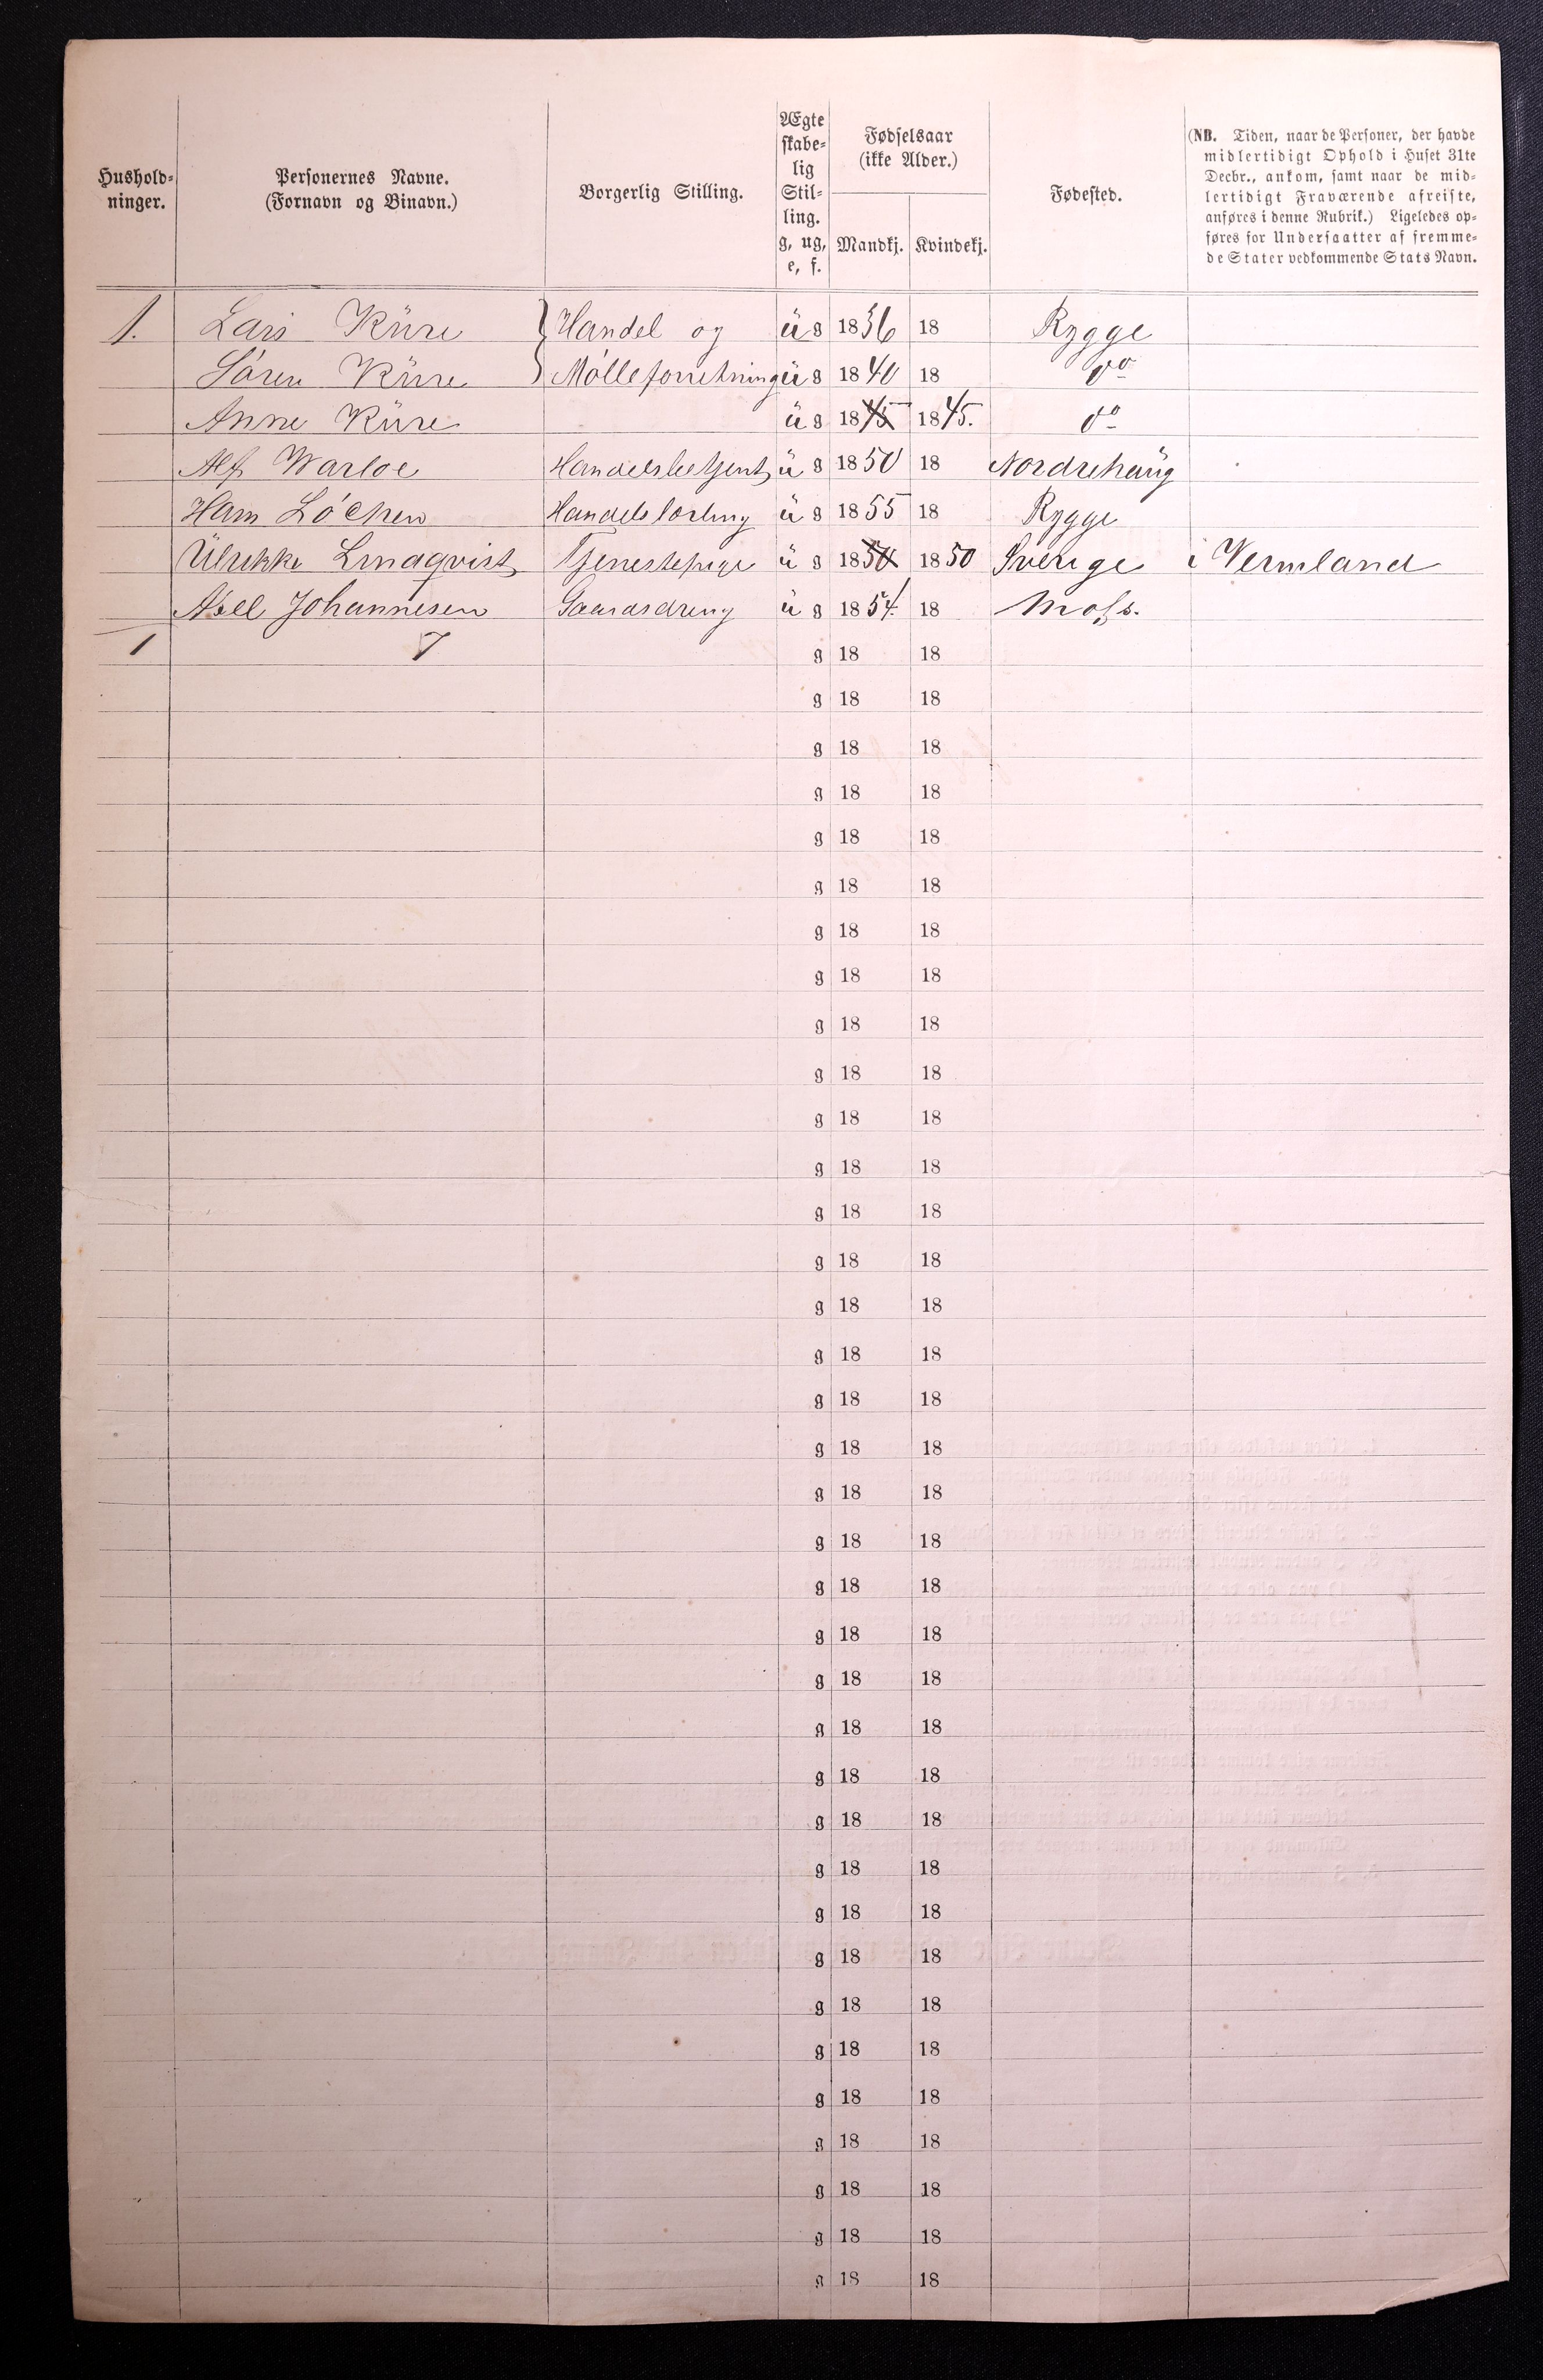 Hushold-
ninger.
Personernes Navne.
(Fornavn og Binavn.)
Borgerlig Stilling.
Ægte
skabe-
lig
Stil-
ling.
g, ug,
e, f.
Fødselsaar
(ikke Alder.)
Mandkj. Kvindekj.
Fødested.
(NB. Tiden, naar de Personer, der havde
midlertidigt Ophold i Huset 31te
Decbr., ankom, samt naar de mid-
lertidigt Fraværende afreiste,
anføres i denne Rubrik.) Ligeledes op-
føres for Undersaatter af fremme-
de Stater vedkommende Stats Navn.
1. Lars Küre } Handel og ü g 1836 18 Rygge
Sören Küre } Mölleforretning ü g 1840 18 do
Anne Küre ü g 1845 1845. do
Alf Warloe Handelsbetjent ü g 1850 18 Nordrehaüg
Hans Löchen Handelslærling ü g 1855 18 Rygge
Ülrikke Lindqvist Tjenestepige ü g 1850 1850 Sverige i Vermland
Axel Johannesen Gaardsdreng ü g 1854. 18 Moss.
1 7 g 18 18
g 18 18
g 18 18
g 18 18
g 18 18
g 18 18
g 18 18
g 18 18
g 18 18
g 18 18
g 18 18
g 18 18
g 18 18
g 18 18
g 18 18
g 18 18
g 18 18
g 18 18
g 18 18
g 18 18
g 18 18
g 18 18
g 18 18
g 18 18
g 18 18
g 18 18
g 18 18
g 18 18
g 18 18
g 18 18
g 18 18
g 18 18
g 18 18
g 18 18
g 18 18
g 18 18